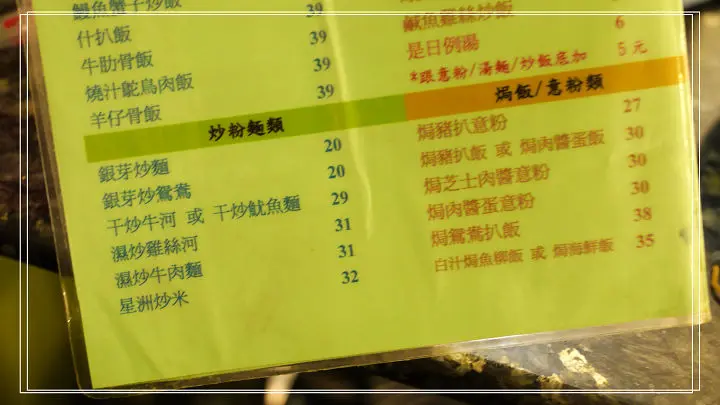 鰻魚蟹子炒飯
什扒飯 39
牛肋骨飯 39
燒汁鴕鳥肉飯 39
羊仔骨飯 39
炒粉麵類
銀芽炒麵 20
銀芽炒鴛鴦 20
干炒牛河 或 干炒魷魚麵 29
濕炒雞絲河 31
濕炒牛肉麵 31
星洲炒米 32
鹹魚雞絲炒飯
是日例湯 6
*跟意粉/湯麵/炒飯底加 5 元
焗飯/意粉類
焗豬扒意粉 27
焗豬扒飯 或 焗肉醬蛋飯 30
焗芝士肉醬意粉 30
焗肉醬蛋意粉 30
焗鴛鴦扒飯 38
白汁焗魚柳飯 或 焗海鮮飯 35